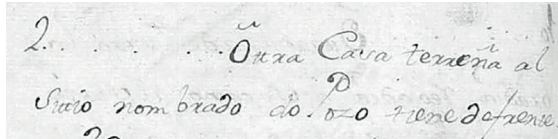 2. . . . . . Outra Casa terreña al
Sitio nombrado do Pozo tiene de frente